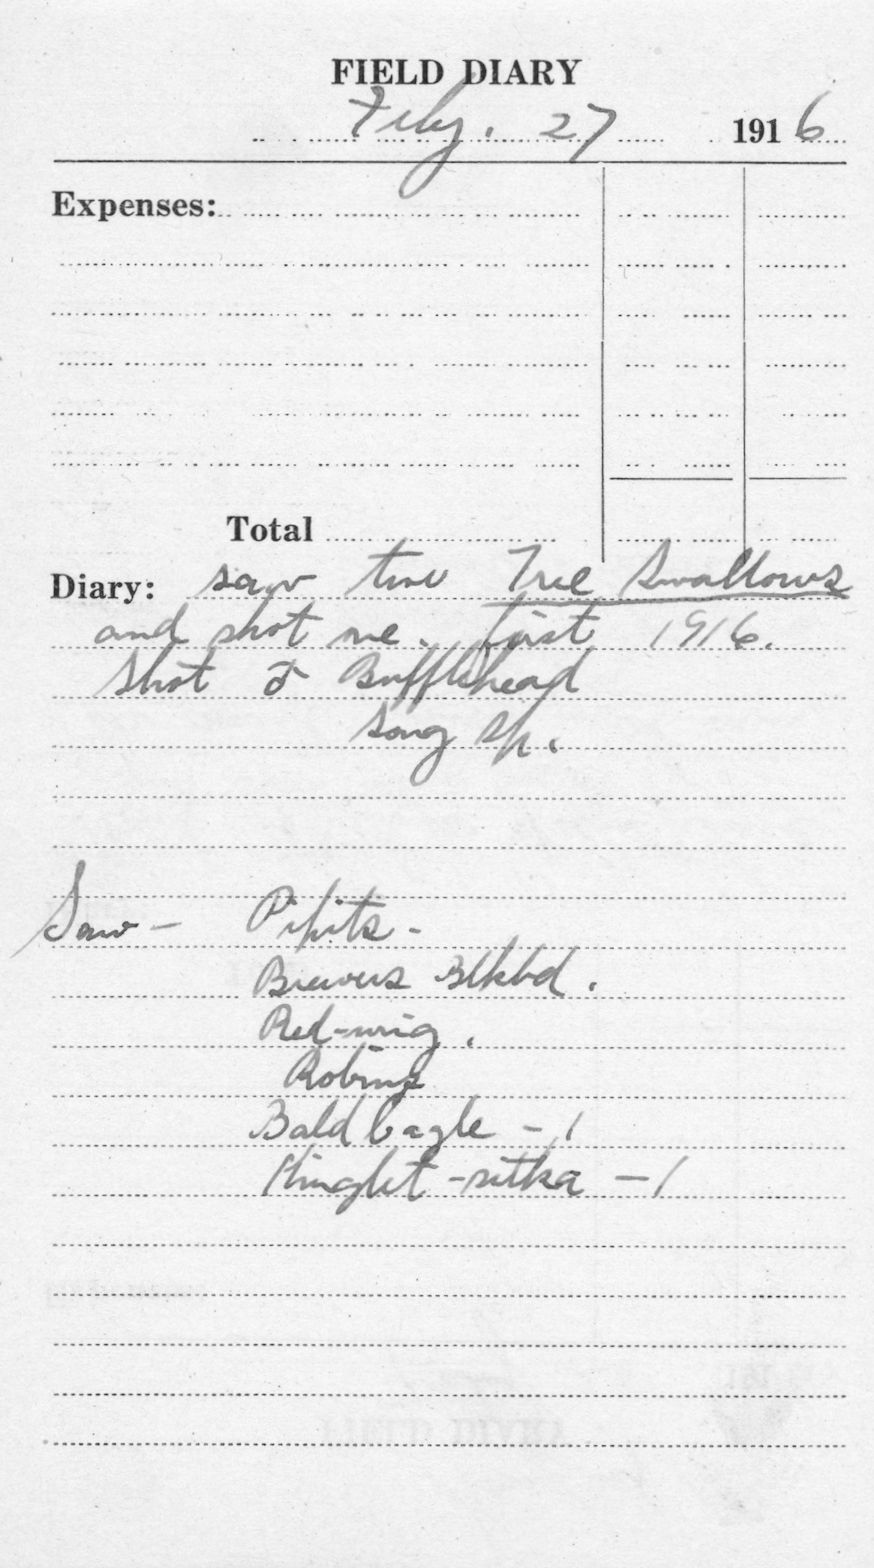 FIELD DIARY
Feby. 27 1916
Expenses:
Total
Diary: saw two Tree Swallows
and shot one. first 1916.
Shot ♂ Bufflehead
Song Sp.
Saw - Pipits -
Brewers Blkbd.
Red-wing.
Robins
Bald Eagle - 1
Kinglet - sitka - 1